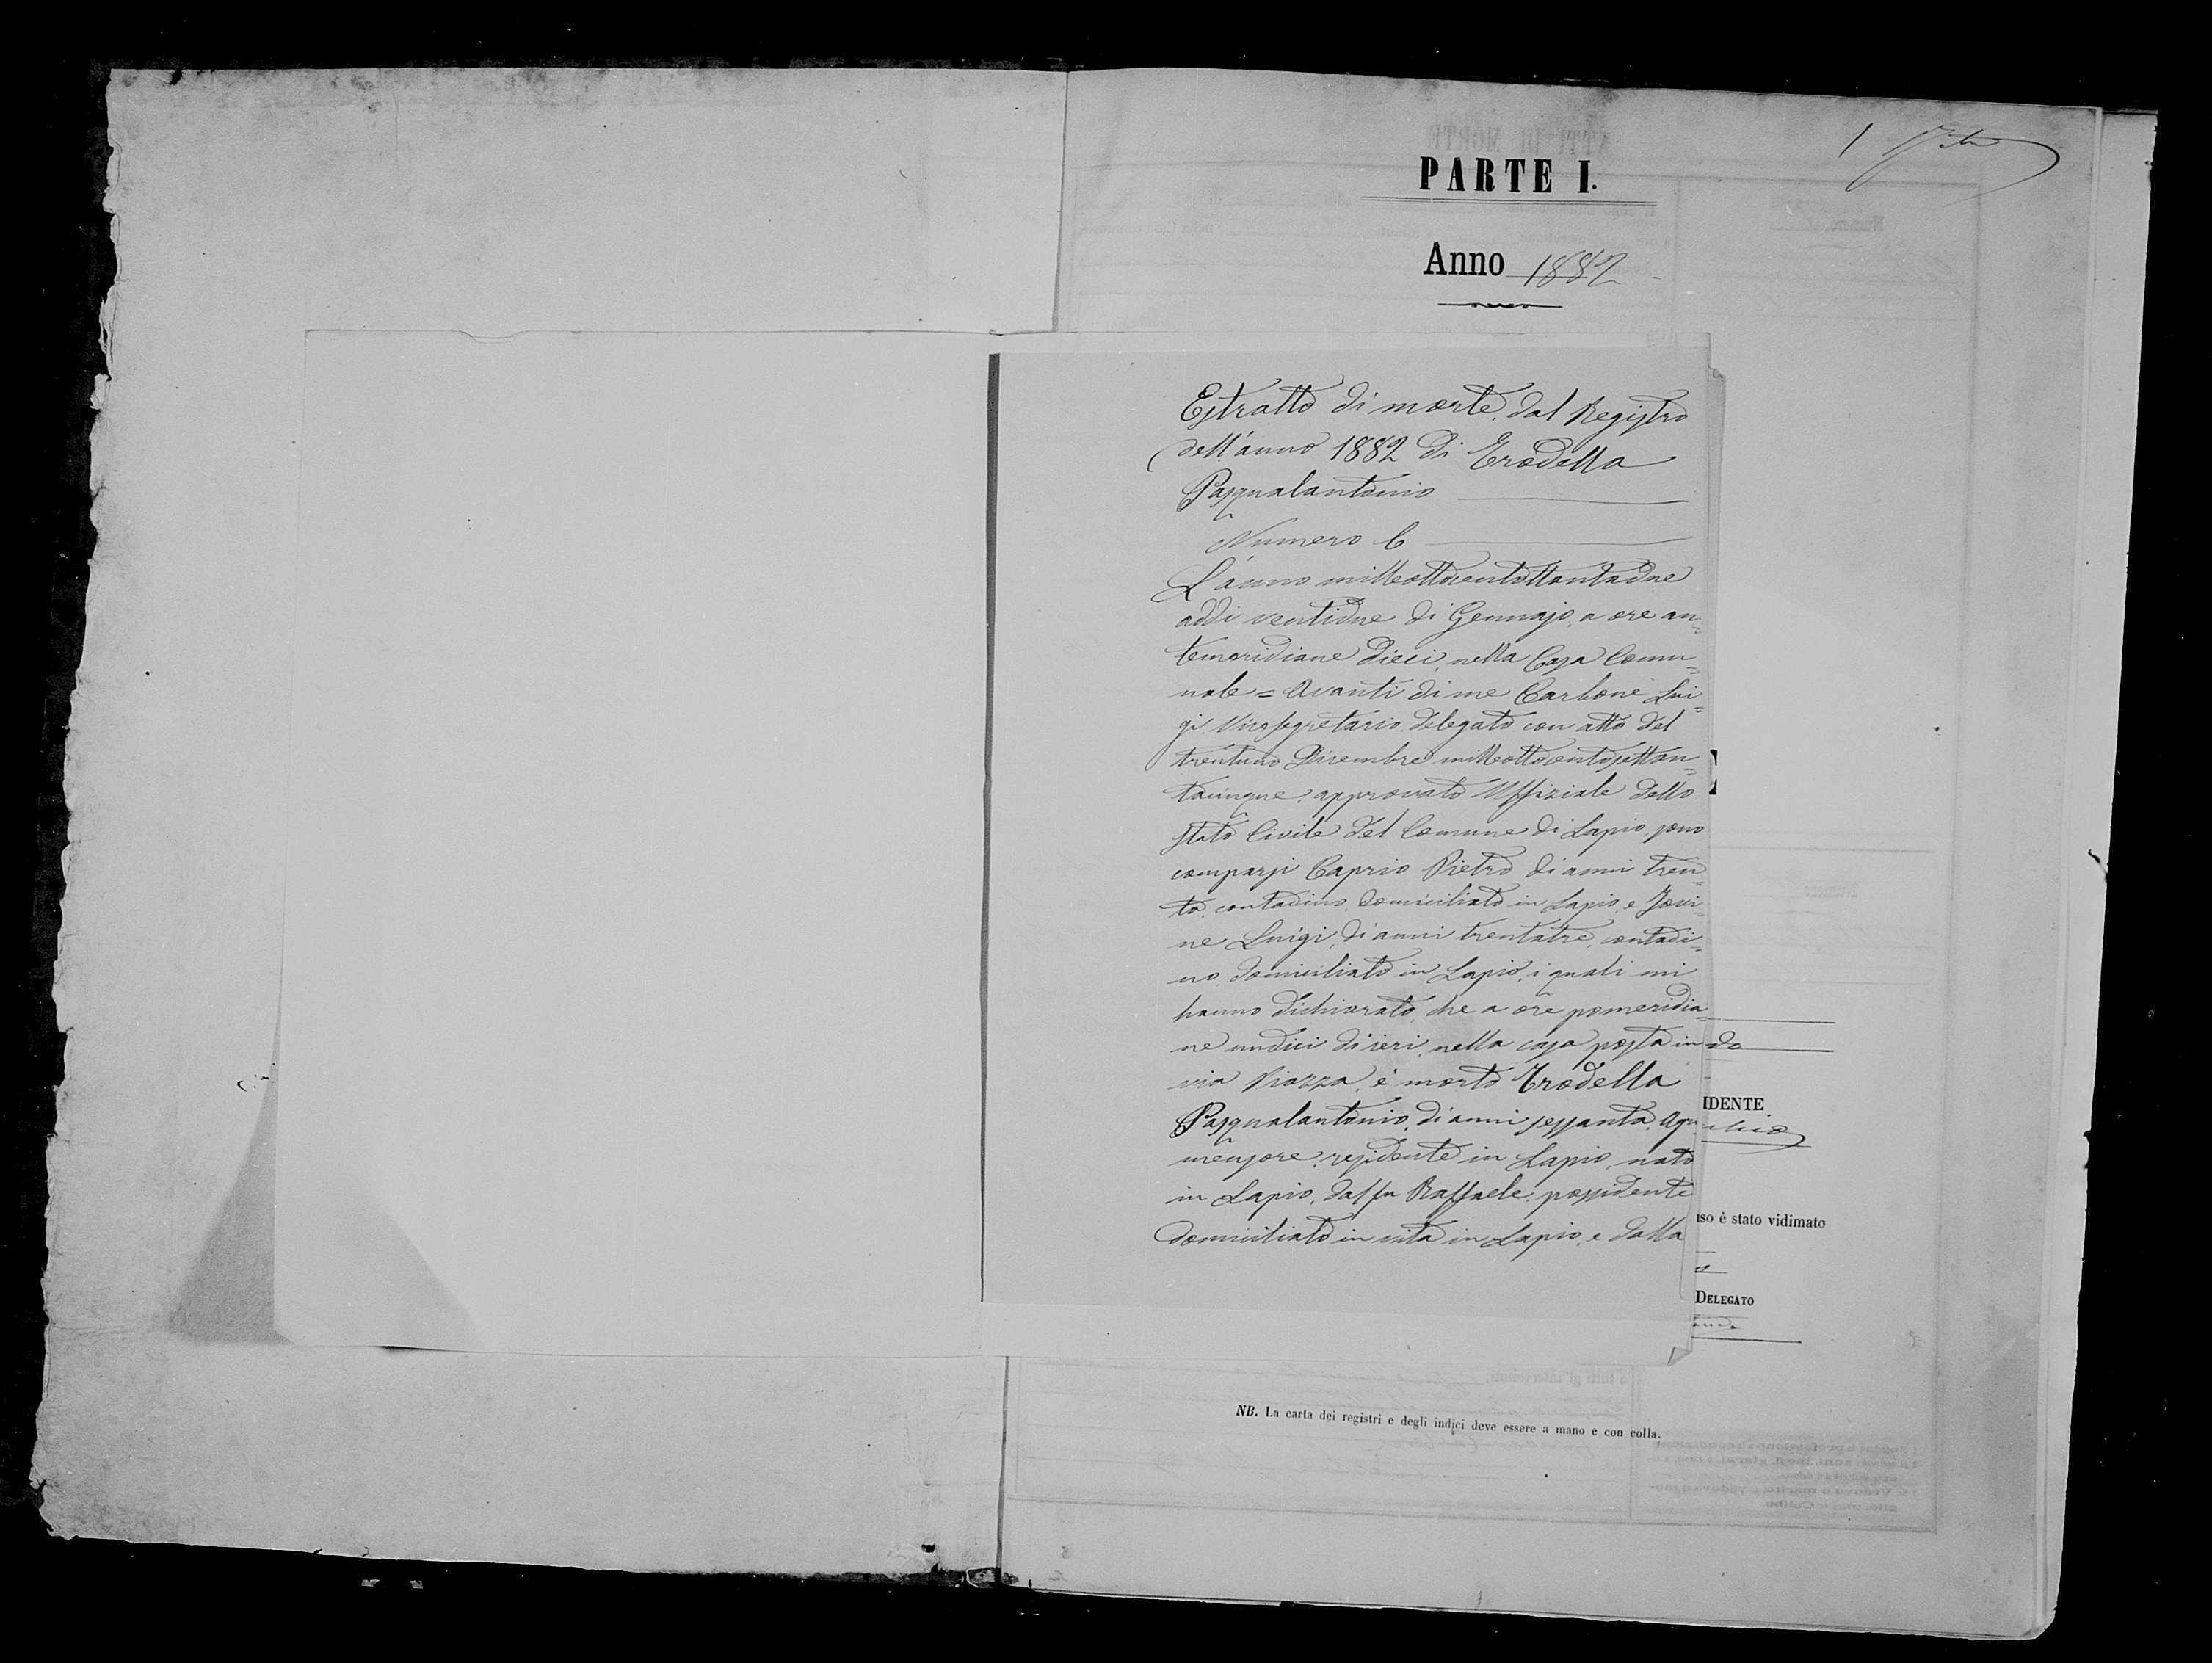 PARTE I.
1
Anno 1882
Estratto di morte, dal Registro
dell'anno 1882 di Trodella
Pasqualantonio
Numero 6
L'anno milleottocentottantadue
addì ventidue di Gennajo, a ore an=
temeridiane dieci, nella Casa Comu=
nale = Avanti di me Carbone Lui=
gi Vicesegretario delegato con atto del
trentuno Dicembre milleottocentosettan=
tacinque, approvato Uffiziale dello
Stato Civile del Comune di Lapio, sono
comparsi Caprio Pietro di anni tren=
ta, contadino, domiciliato in Lapio, e Jovi=
ne Luigi, di anni trentatre, contadi=
no, domiciliato in Lapio, i quali mi
hanno dichiarato, che a ore pomeridia=
ne undici di ieri, nella casa posta in
via Piazza, è morto Trodella
Pasqualantonio, di anni sessanta, Agri
mensore, residente in Lapio, nato
in Lapio, dal fu Raffaele, possidente
domiciliato in vita in Lapio, e dalla
do
IDENTE
uso è stato vidimato
DELEGATO
NB. La carta dei registri e degli indici deve essere a mano e con colla.